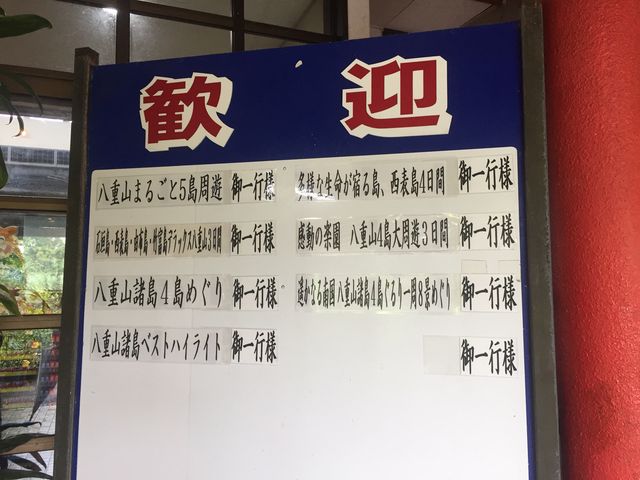 歓迎
八重山まるごと5島周遊 御一行様
石垣島・西表島・由布島・竹富島デラックス八重山3日間 御一行様
八重山諸島4島めぐり 御一行様
八重山諸島ベストハイライト 御一行様
多様な生命が宿る島、西表島4日間 御一行様
感動の楽園 八重山4島大周遊3日間 御一行様
遥かなる南国八重山諸島4島ぐるり一周8景めぐり 御一行様
御一行様